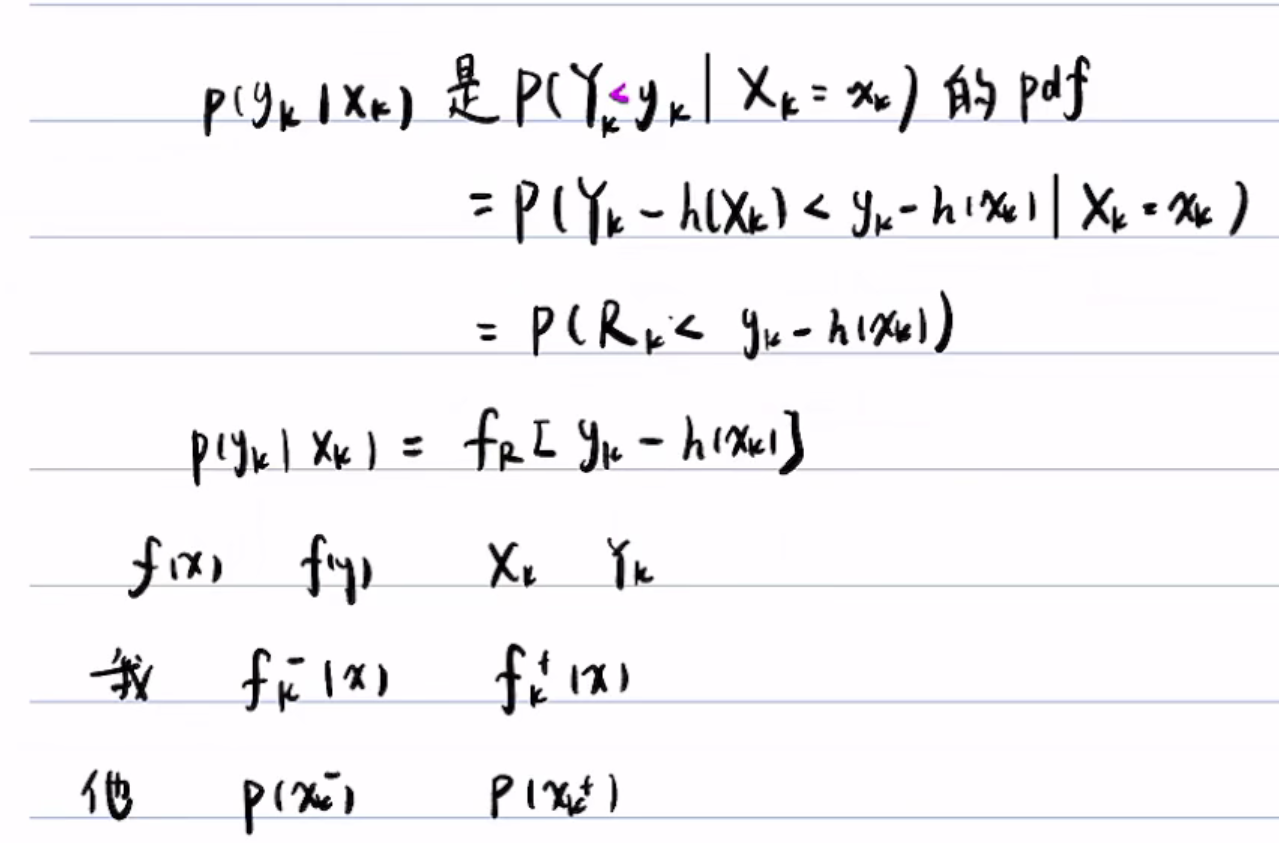 p(y_k|x_k) 是 P(Y_k<y_k|X_k=x_k) 的 pdf
=P(Y_k-h(X_k)<y_k-h(x_k)|X_k=x_k)
=P(R_k<y_k-h(x_k))
p(y_k|x_k)=f_R[y_k-h(x_k)]
f(x) f(y) X_k Y_k
我 f_k^-(x) f_k^+(x)
他 p(x_k^-) p(x_k^+)